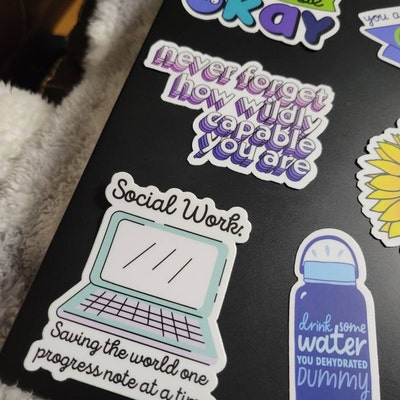 okay
you a
never forget
how wildly
capable
you are
Social Work:
Saving the world one
progress note at a tim
drink some
water
YOU DEHYDRATED
DUMMY